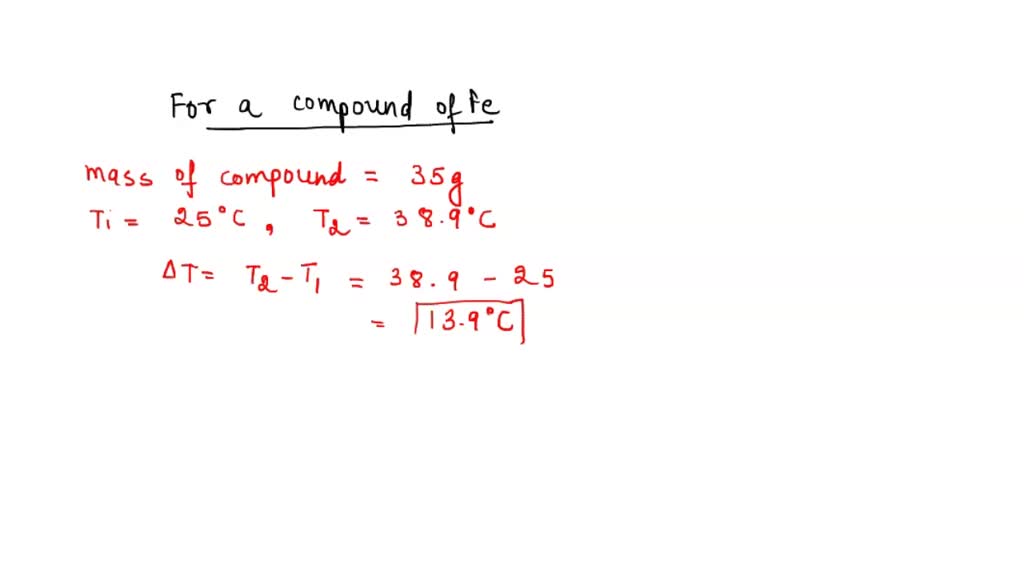 For a compound of Fe
mass of compound = 35g
Ti = 25°C, T2 = 38.9°C
ΔT = T2 - T1 = 38.9 - 25
= 13.9°C